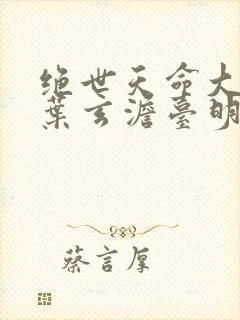 绝世天命大
葉玄澹臺明
蔡言厚